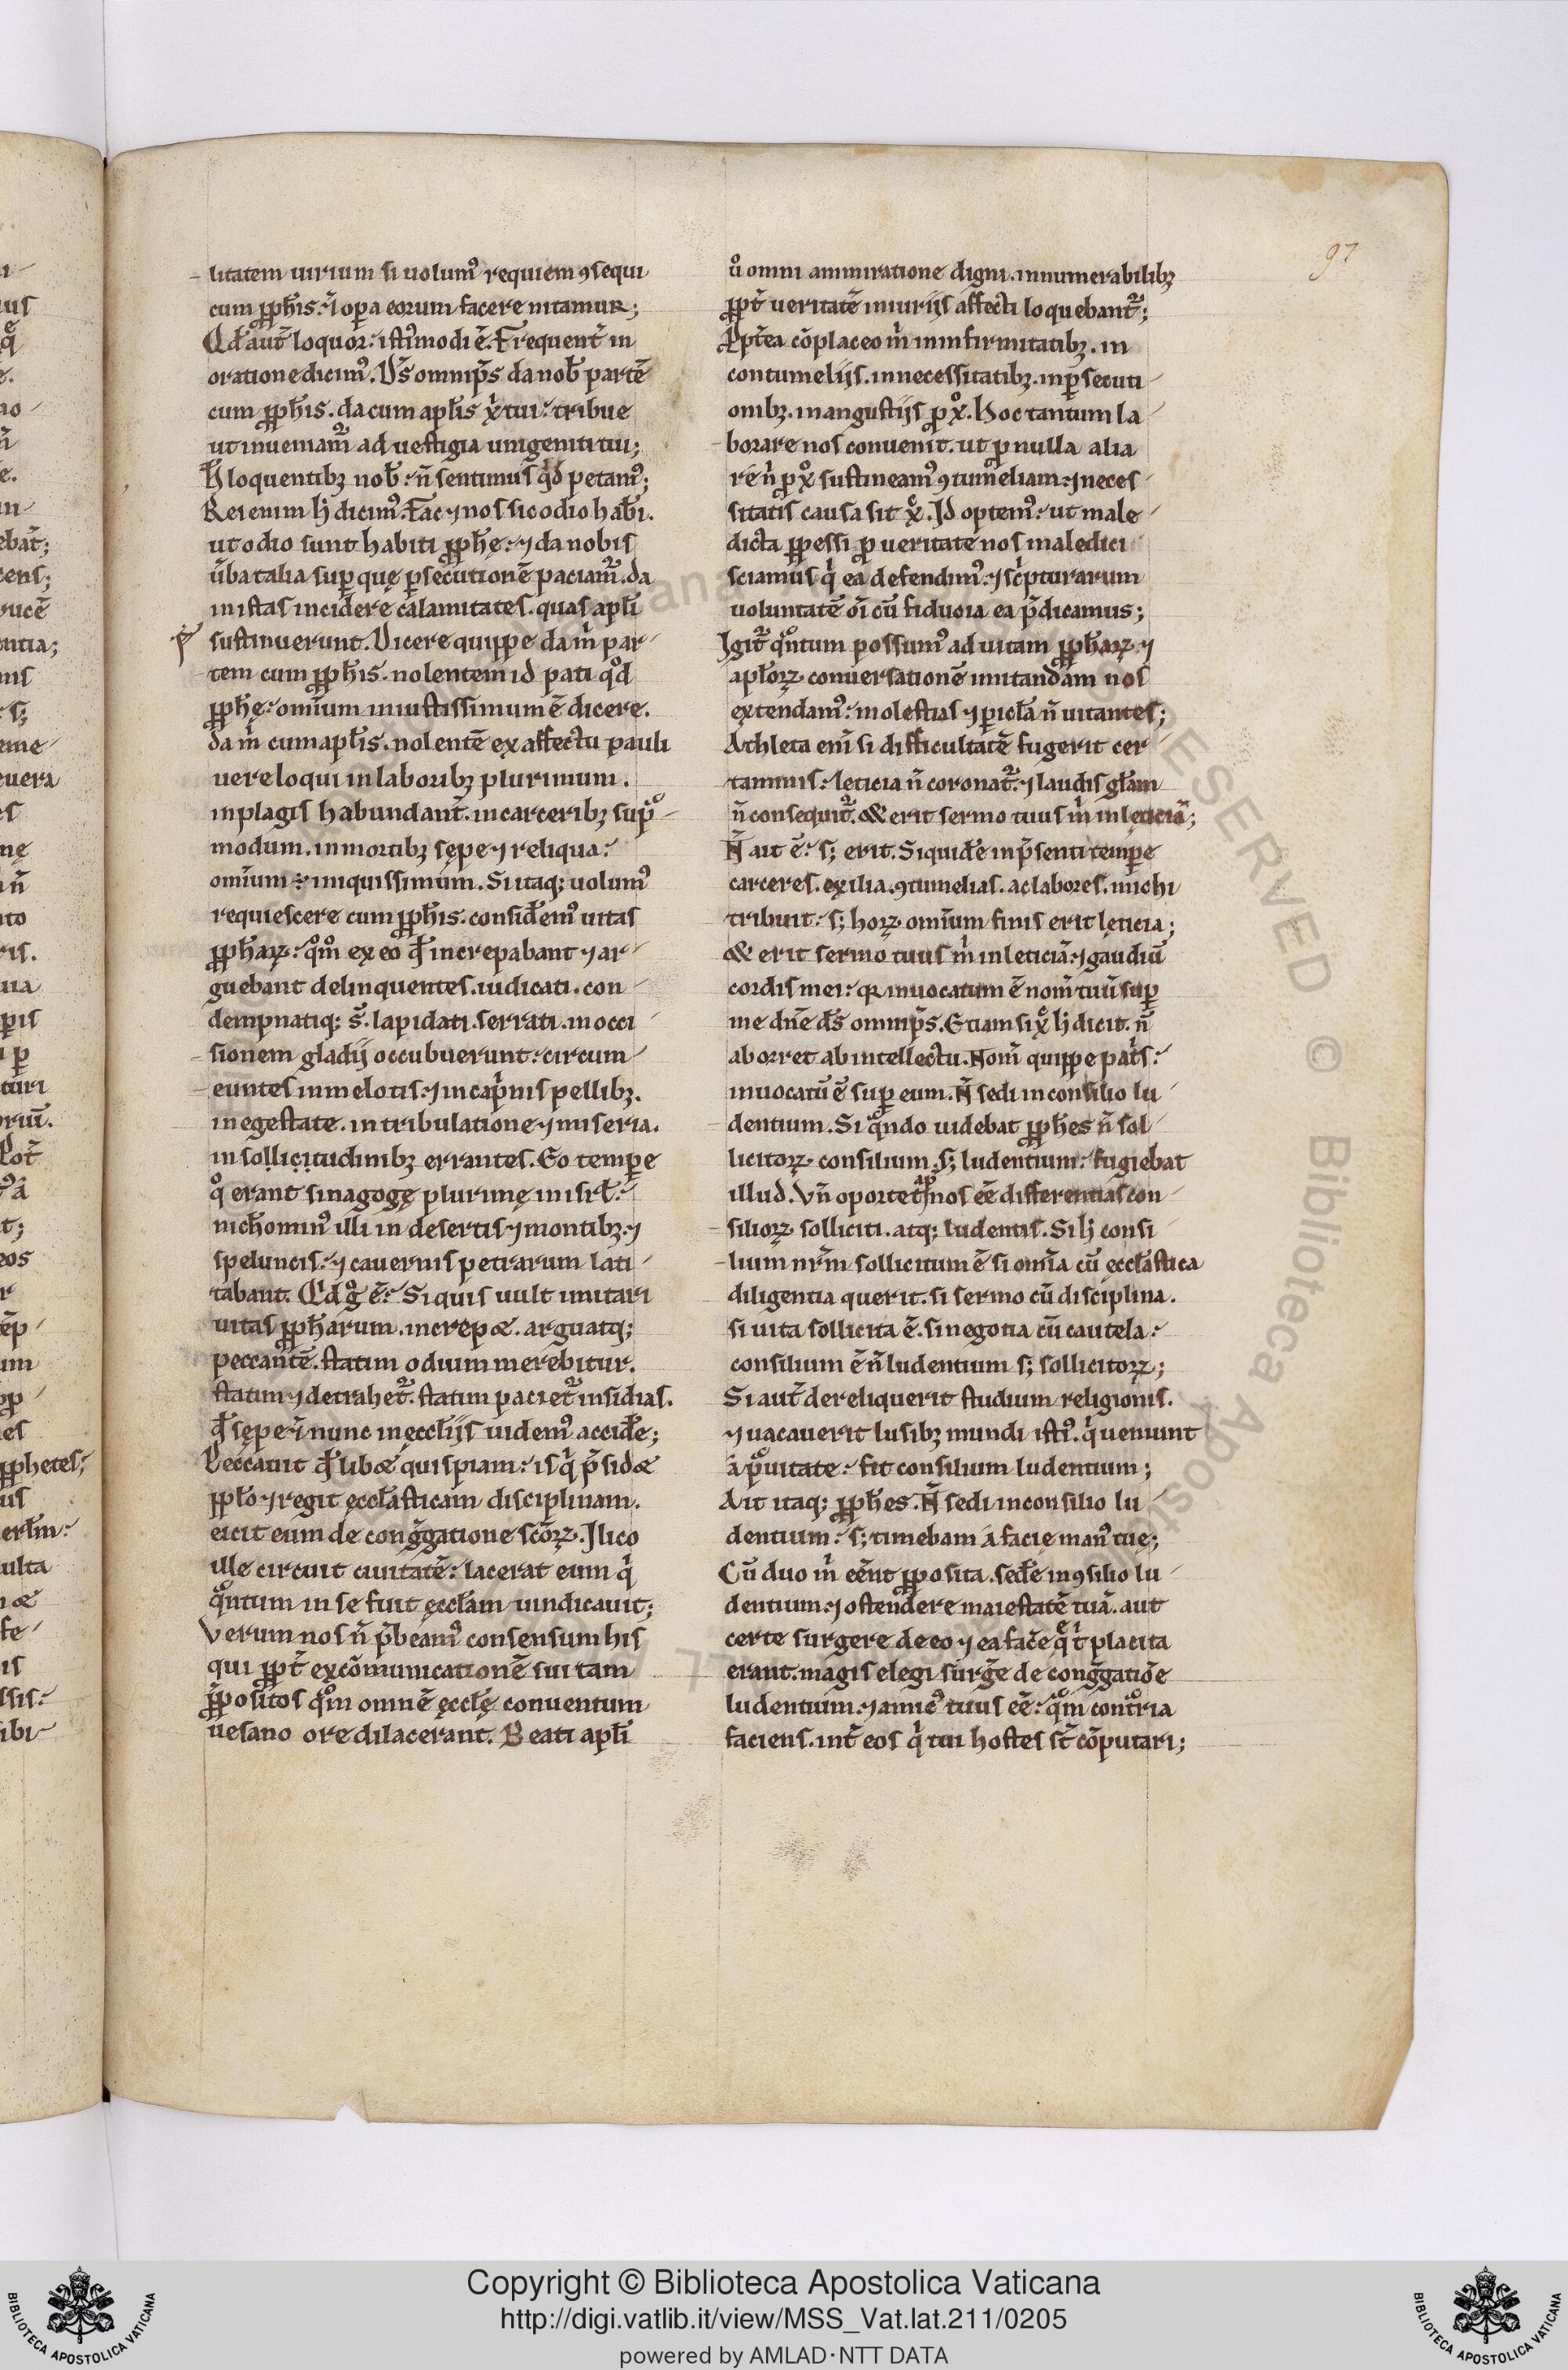 97
litatem uirium si uolumꝰ requiem ꝯsequi
cum ꝓph̄is. ⁊ oꝑa eorum facere nitamur;
Qd̄ aut̄ loquor: istiꝰmodi ē. Frequent̄ in
oratione dicimꝰ. Ds̄ omnip̄s da nob̄ partē
cum ꝓph̄is. da cum apl̄is xp̄i tui: tribue
ut inueniam̄ ad uestigia unigeniti tui;
H̄ loquentibꝫ nob̄: n̄ sentimus qd̄ petamꝰ;
Rei enim h̄ dicimꝰ. Fac ⁊ nos sic odio hab̄i.
ut odio sunt habiti ꝓph̄ę: ⁊ da nobis
ūba talia suꝑ quę ꝑsecutionē paciam̄. da
in istas incidere calamitates. quas apl̄i
sustinuerunt. Dicere quippe da m̄ par
tem cum ꝓph̄is. nolentem id pati qd̄
ꝓph̄ę: omīum iniustissimum ē dicere.
da m̄ cum apl̄is. nolentē ex affectu pauli
uere loqui in laboribꝫ plurimum.
in plagis habundant̄. in carceribꝫ supᵒ
modum. in mortibꝫ sępe ⁊ reliqua:
omīum: iniquissimum. Si itaq; uolumꝰ
requiescere cum ꝓph̄is. consid̄emꝰ uitas
ꝓph̄aꝝ: qm̄ ex eo qd̄ increpabant ⁊ ar
guebant delinquentes. iudicati. con
dempnatiq; s̄. lapidati. serrati. in occi
sionem gladij occubuerunt: circum
euntes in melotis: ⁊ in cap̄nis pellibꝫ.
in egestate. in tribulatione ⁊ miseria.
in sollicitudinibꝫ errantes. Eo temꝑe
qᵒ erant sinagogę plurimę in isrl̄:
nichominꝰ illi in desertis ⁊ montibꝫ. ⁊
speluncis: ⁊ cauernis petrarum lati
tabant. Qd̄ g̊ ē: Si quis uult imitari
uitas ꝓph̄arum. increpæ. arguatq;
peccantē. statim odium merebitur.
statim ⁊ detrahet̄. statim paciet̄ insidias.
qd̄ sępe ⁊ nunc in ęccl̄ijs uidemꝰ accid̄e;
Peccauit qd̄libæ quispiam: is q̇ p̄sidæ
ppl̄o ⁊ regit ęccl̄asticam disciplinam.
eicit eum de cong̅gatione scōꝝ. Ilico
ille circuit ciuitatē: lacerat eum q̇
qᵒntum in se fuit ęccl̄am uindicauit;
Verum nos n̄ p̄beamꝰ consensum his
qui ꝓpt̄ excōmunicationē sui tam
ꝓpositos qm̄ omnē ęccl̄ę conuentum
uesano ore dilacerant. Beati apl̄i
uᵒ omni ammiratione digni. innumerabilibꝫ
ꝓpt̄ ueritatē iniurijs affecti loquebant̄;
Ꝓpt̄ea cōplaceo m̄ in infirmitatibꝫ. in
contumelijs. in necessitatibꝫ. in ꝑsecuti
onibꝫ. in angustijs ꝓ xᵒ. Hoc tantum la
borare nos conuenit. ut ꝓ nulla alia
re n̄ ꝓ xᵒ sustineamꝰ ꝯtumeliam: ⁊ neces
sitatis causa sit xc̄. Id optemꝰ: ut male
dicta ꝑpessi ꝓ ueritate nos maledici
sciamus q̇ ea defendimꝰ: ⁊ sc̄pturarum
uoluntatē oī cū fiducia ea p̄dicamus;
Igit̄ qᵒntum possumꝰ ad uitam ꝓph̄aꝝ ⁊
apl̄oꝝ conuersationē imitandam nos
extendamꝰ: molestias ⁊ ꝑicl̄a n̄ uitantes;
Athleta eni̅ si difficultatē fugerit cer
taminis: leticia n̄ coronat̄. ⁊ laudis gl̄am
n̄ consequit̄. & erit sermo tuus m̄ in lęticiā;
N̄ ait ē: s; erit. Siquid̄e in p̄senti temꝑe
carceres. exilia. ꝯtumelias. ac labores. michi
tribuit: s; hoꝝ omīum finis erit lęticia;
& erit sermo tuus m̄ in leticiā: ⁊ gaudiū
cordis mei: qꝛ inuocatum ē nom̄ tuū suꝑ
me dn̄e ds̄ omnip̄s. Etiam si xc̄ h̄ dicit. n̄
aborret ab intellectu. Nom̄ quippe pat̄s:
inuocatū ē suꝑ eum. N̄ sedi in consilio lu
dentium. Si qᵒndo uidebat ꝓph̄es n̄ sol
licitoꝝ consilium s; ludentium: fugiebat
illud. Vn̄ oportet nos eē differentias con
silioꝝ solliciti. atq; ludentis. Si h̄ consi
lium nr̄m sollicitum ē si omīa cū ęccl̄astica
diligentia querit. si sermo cū disciplina.
si uita sollicita ē. si negotia cū cautela:
consilium ē n̄ ludentium s; sollicitoꝝ;
Si aut̄ dereliquerit studium religionis.
⁊ uacauerit lusibꝫ mundi istiꝰ. q̇ ueniunt
a prauitate: fit consilium ludentium;
Ait itaq; ꝓph̄es. N̄ sedi in consilio lu
dentium: s; timebam a facie manꝰ tuę;
Cū duo m̄ eēnt ꝓposita. sed̄e in ꝯsilio lu
dentium: ⁊ ostendere maiestatē tuā. aut
certe surgere de eo ⁊ ea fac̄e placita
erant. magis elegi surḡe de cong̅gatiōe
ludentium. ⁊ amicꝰ tuus eē: qm̄ contᵒria
faciens. int̄ eos q̇ tui hostes st̄ cōputari;
Copyright © Biblioteca Apostolica Vaticana
http://digi.vatlib.it/view/MSS_Vat.lat.211/0205
powered by AMLAD·NTT DATA
BIBLIOTECA APOSTOLICA VATICANA
BIBLIOTECA APOSTOLICA VATICANA